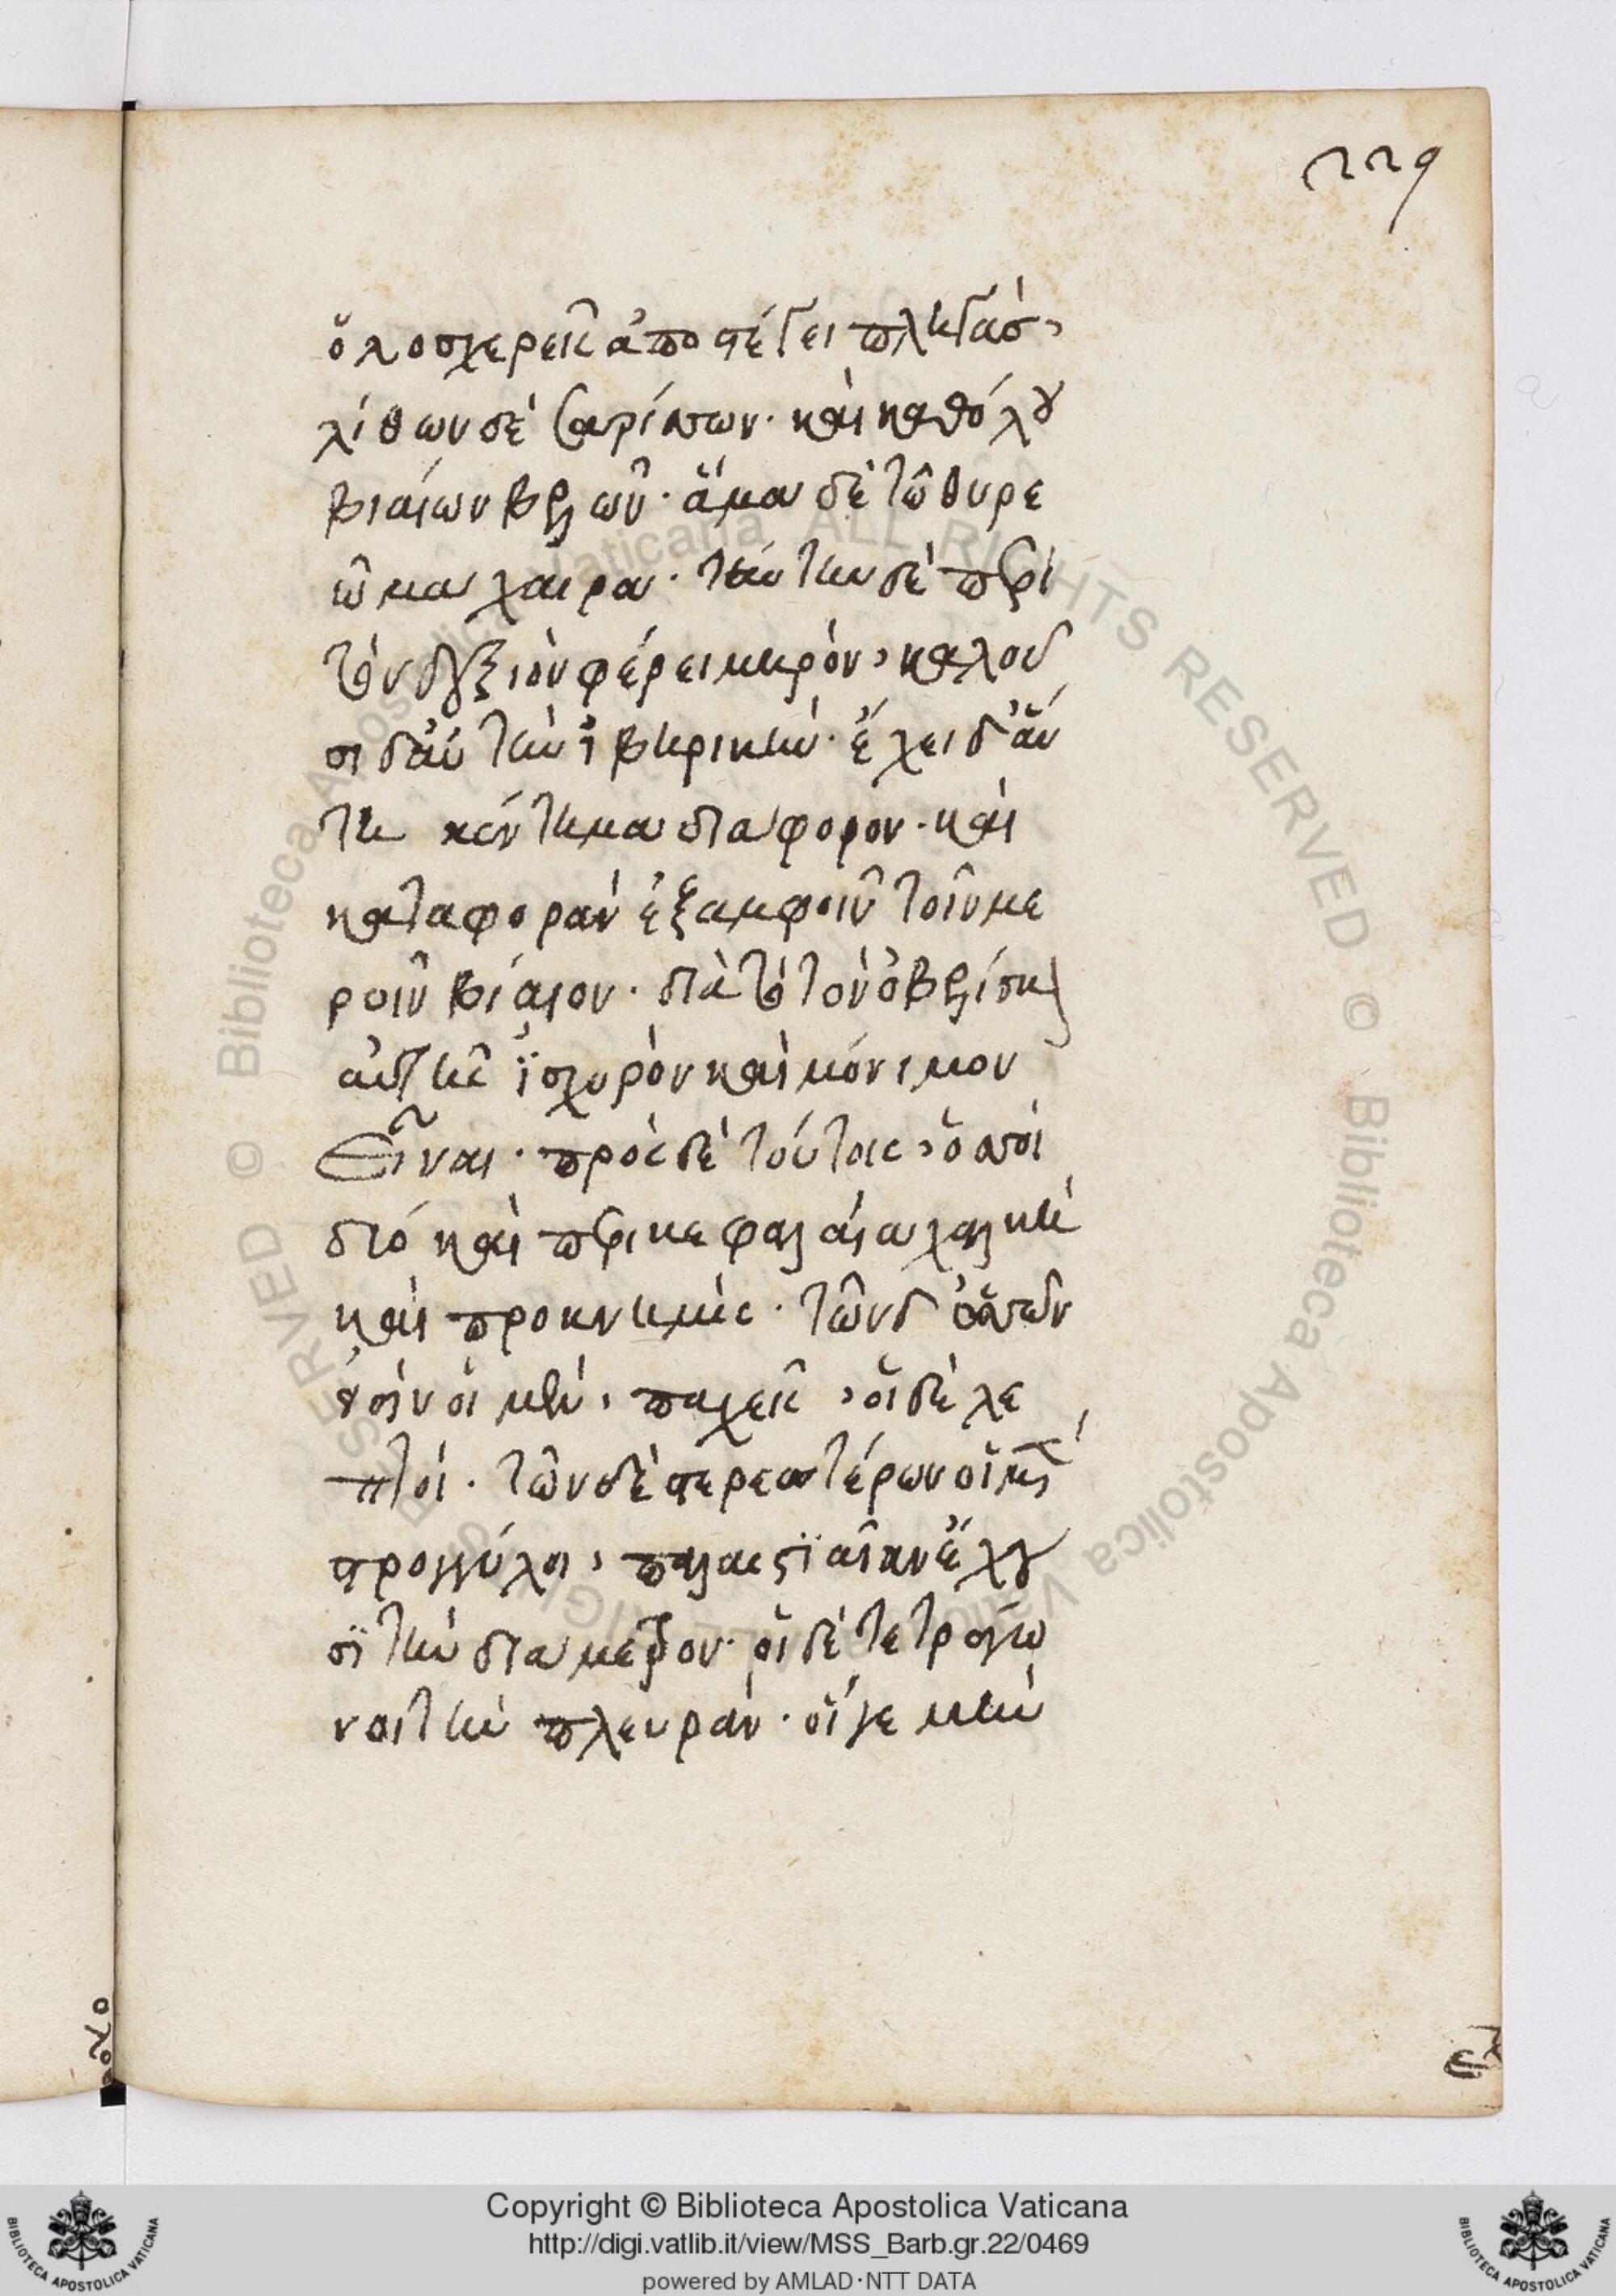 229
ὁλοσχερεῖς ἀποστέγει πληγὰς,
λίθων δὲ σαρίσσων· καὶ καθόλου
βιαίων βελῶν· ἅμα δὲ τῶ θυρε
ῶ μάχαιρα· ταύτην δὲ περὶ
τὸν δεξιὸν φέρει μηρὸν, καλοῦ
σι δ' αὐτὴν ἰβηρικὴν· ἔχει δ' αὕ
τη κέντημα διάφορον· καὶ
καταφορὰν ἐξ ἀμφοῖν τοῖν με
ροῖν βίαιον· διὰ τὸ τὸν ὀβελίσκον
αὐτῆς ἰσχυρὸν καὶ μόνιμον
εἶναι· πρὸς δὲ τούτοις, ὑσσοὶ
δύο καὶ περικεφαλαία χαλκῆ
καὶ προκνημίς· τῶν δ' ὑσσῶν
εἰσὶν οἱ μὲν, παχεῖς, οἱ δὲ λε
πτοί· τῶν δὲ στερεωτέρων οἱ μὲν
στρογγύλοι, παλαιστιαίαν ἔχου
σι τὴν διάμετρον· οἱ δὲ τετράγω
νοι τὴν πλευράν· οἵ γε μὴν
Copyright © Biblioteca Apostolica Vaticana
http://digi.vatlib.it/view/MSS_Barb.gr.22/0469
powered by AMLAD·NTT DATA
© Biblioteca Apostolica Vaticana ALL RIGHTS RESERVED
© Biblioteca Apostolica Vaticana ALL RIGHTS RESERVED
BIBLIOTECA APOSTOLICA VATICANA
BIBLIOTECA APOSTOLICA VATICANA